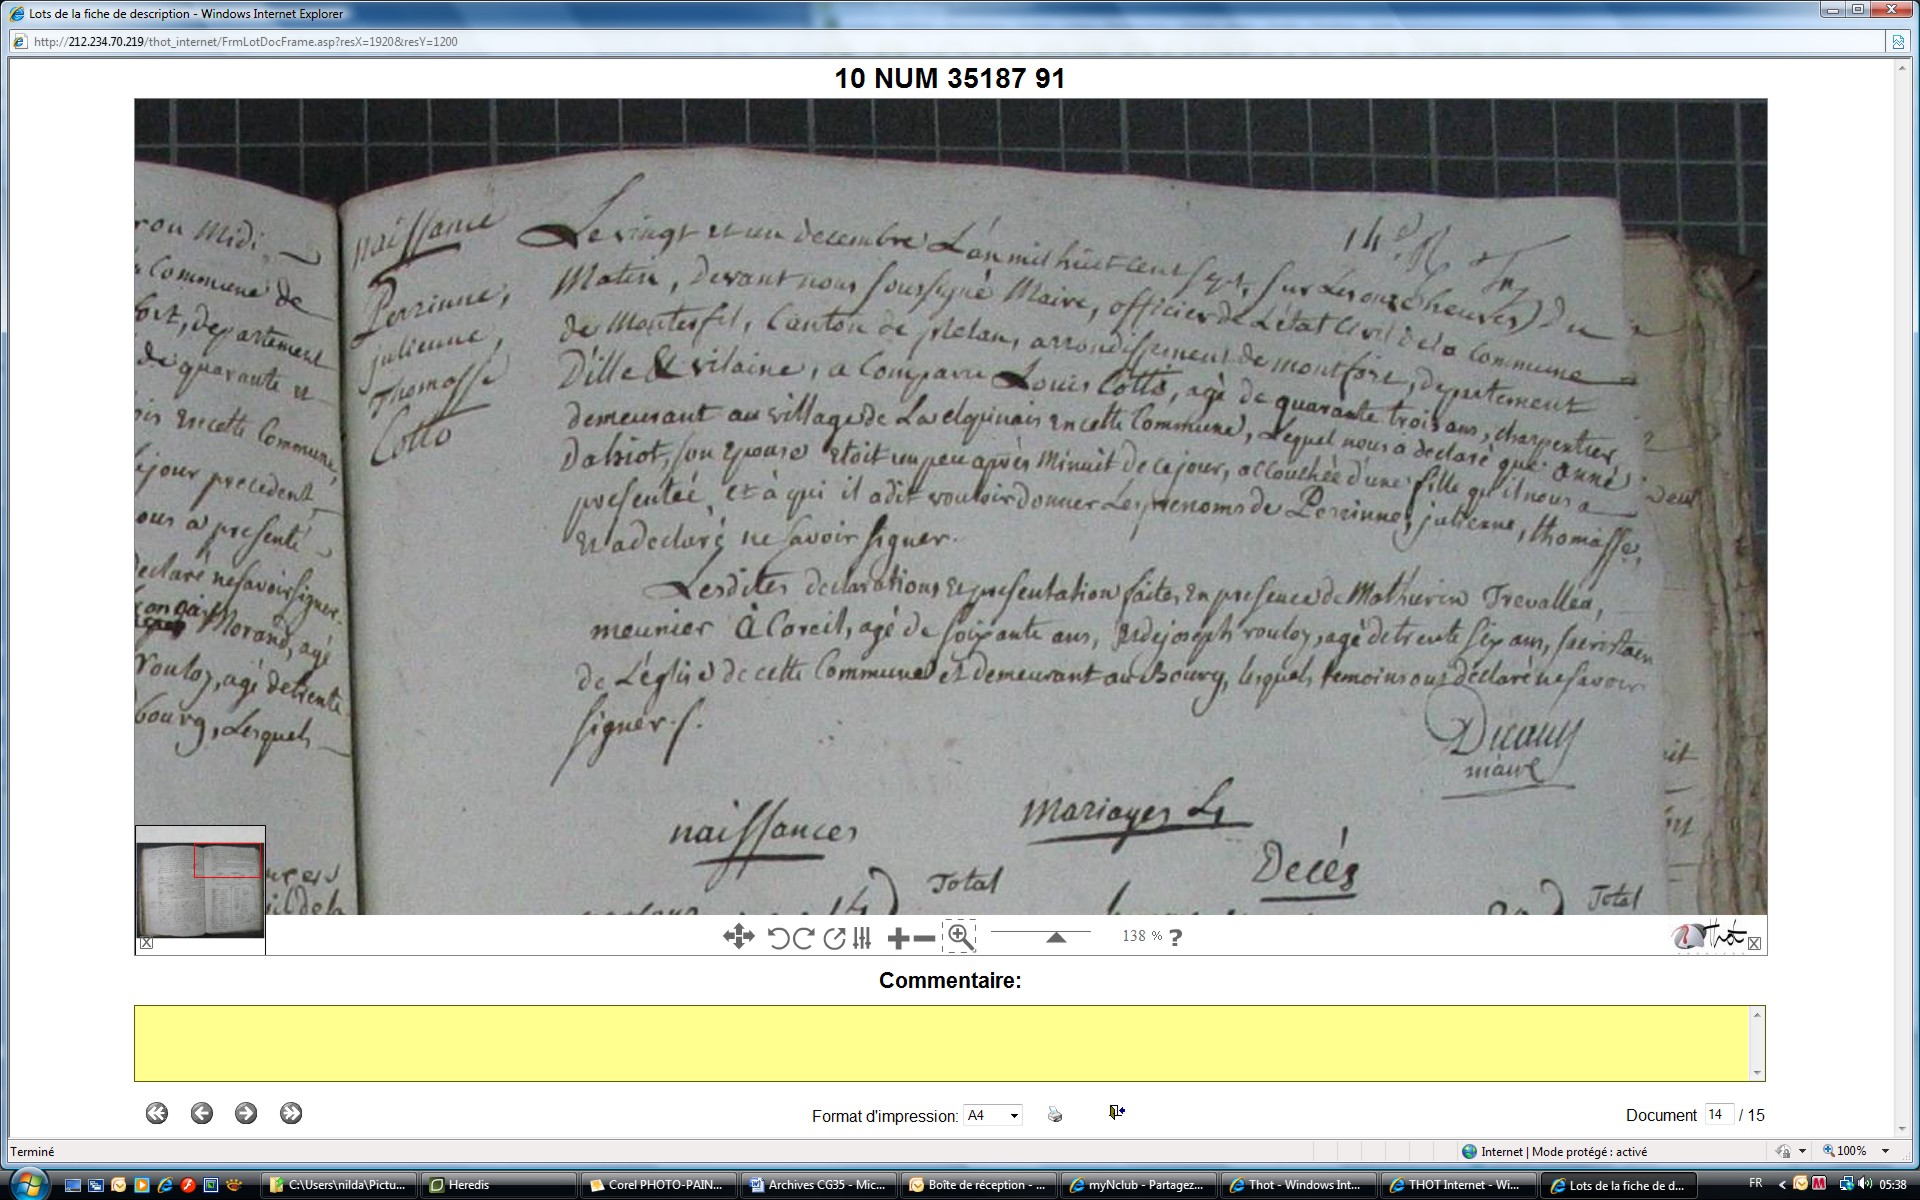 Lots de la fiche de description - Windows Internet Explorer
http://212.234.70.219/thot_internet/FrmLotDocFrame.asp?resX=1920&resY=1200
10 NUM 35187 91
rou Midi,
commune de
fort, departement
de quarante et
en cette Commune,
jour precedent,
ous a presenté
declaré ne savoir signer.
Morand, agé
vouloz, agé de trente
bourg, Lesquels
naissance
Perrinne,
julienne,
Thomasse
Cotto
14e
Le vingt et un decembre L'an mil huit cent sept, sur Les onze heures du
Matin, devant nous soussigné Maire, officier de L'état Civil de la Commune
de Monterfil, Canton de plelan, arrondissement de montfort, departement
D'ille & vilaine, a Comparu Louis Cotto, agé de quarante trois ans, charpentier
demeurant au village de en cette Commune, Lequel nous a declaré que anne
Dahiot, son Epouse etoit un peu après Minuit de ce jour, accouchée d'une fille qu'il nous a
presentée, et à qui il a dit vouloir donner Les prenoms de Perrinne, julienne, thomasse,
et a declaré ne savoir signer.
Lesdites declarations et presentation faites en presence de Mathurin Trevallea,
meunier à Coreil, agé de soixante ans, et de joseph vouloz, agé de trente six ans, sacristain
de L'église de cette Commune et demeurant au Bourg, lesquels temoins ont declaré ne savoir
signer.
maire
naissances
Mariages
Decés
Total
Total
138 % ?
Thot
Commentaire:
Format d'impression: A4
Document 14 / 15
Terminé
Internet | Mode protégé : activé
100%
C:\Users\nilda\Pictu...
Heredis
Corel PHOTO-PAIN...
Archives CG35 - Mic...
Boîte de réception - ...
myNclub - Partagez...
Thot - Windows Int...
THOT Internet - Wi...
Lots de la fiche de d...
FR
05:38